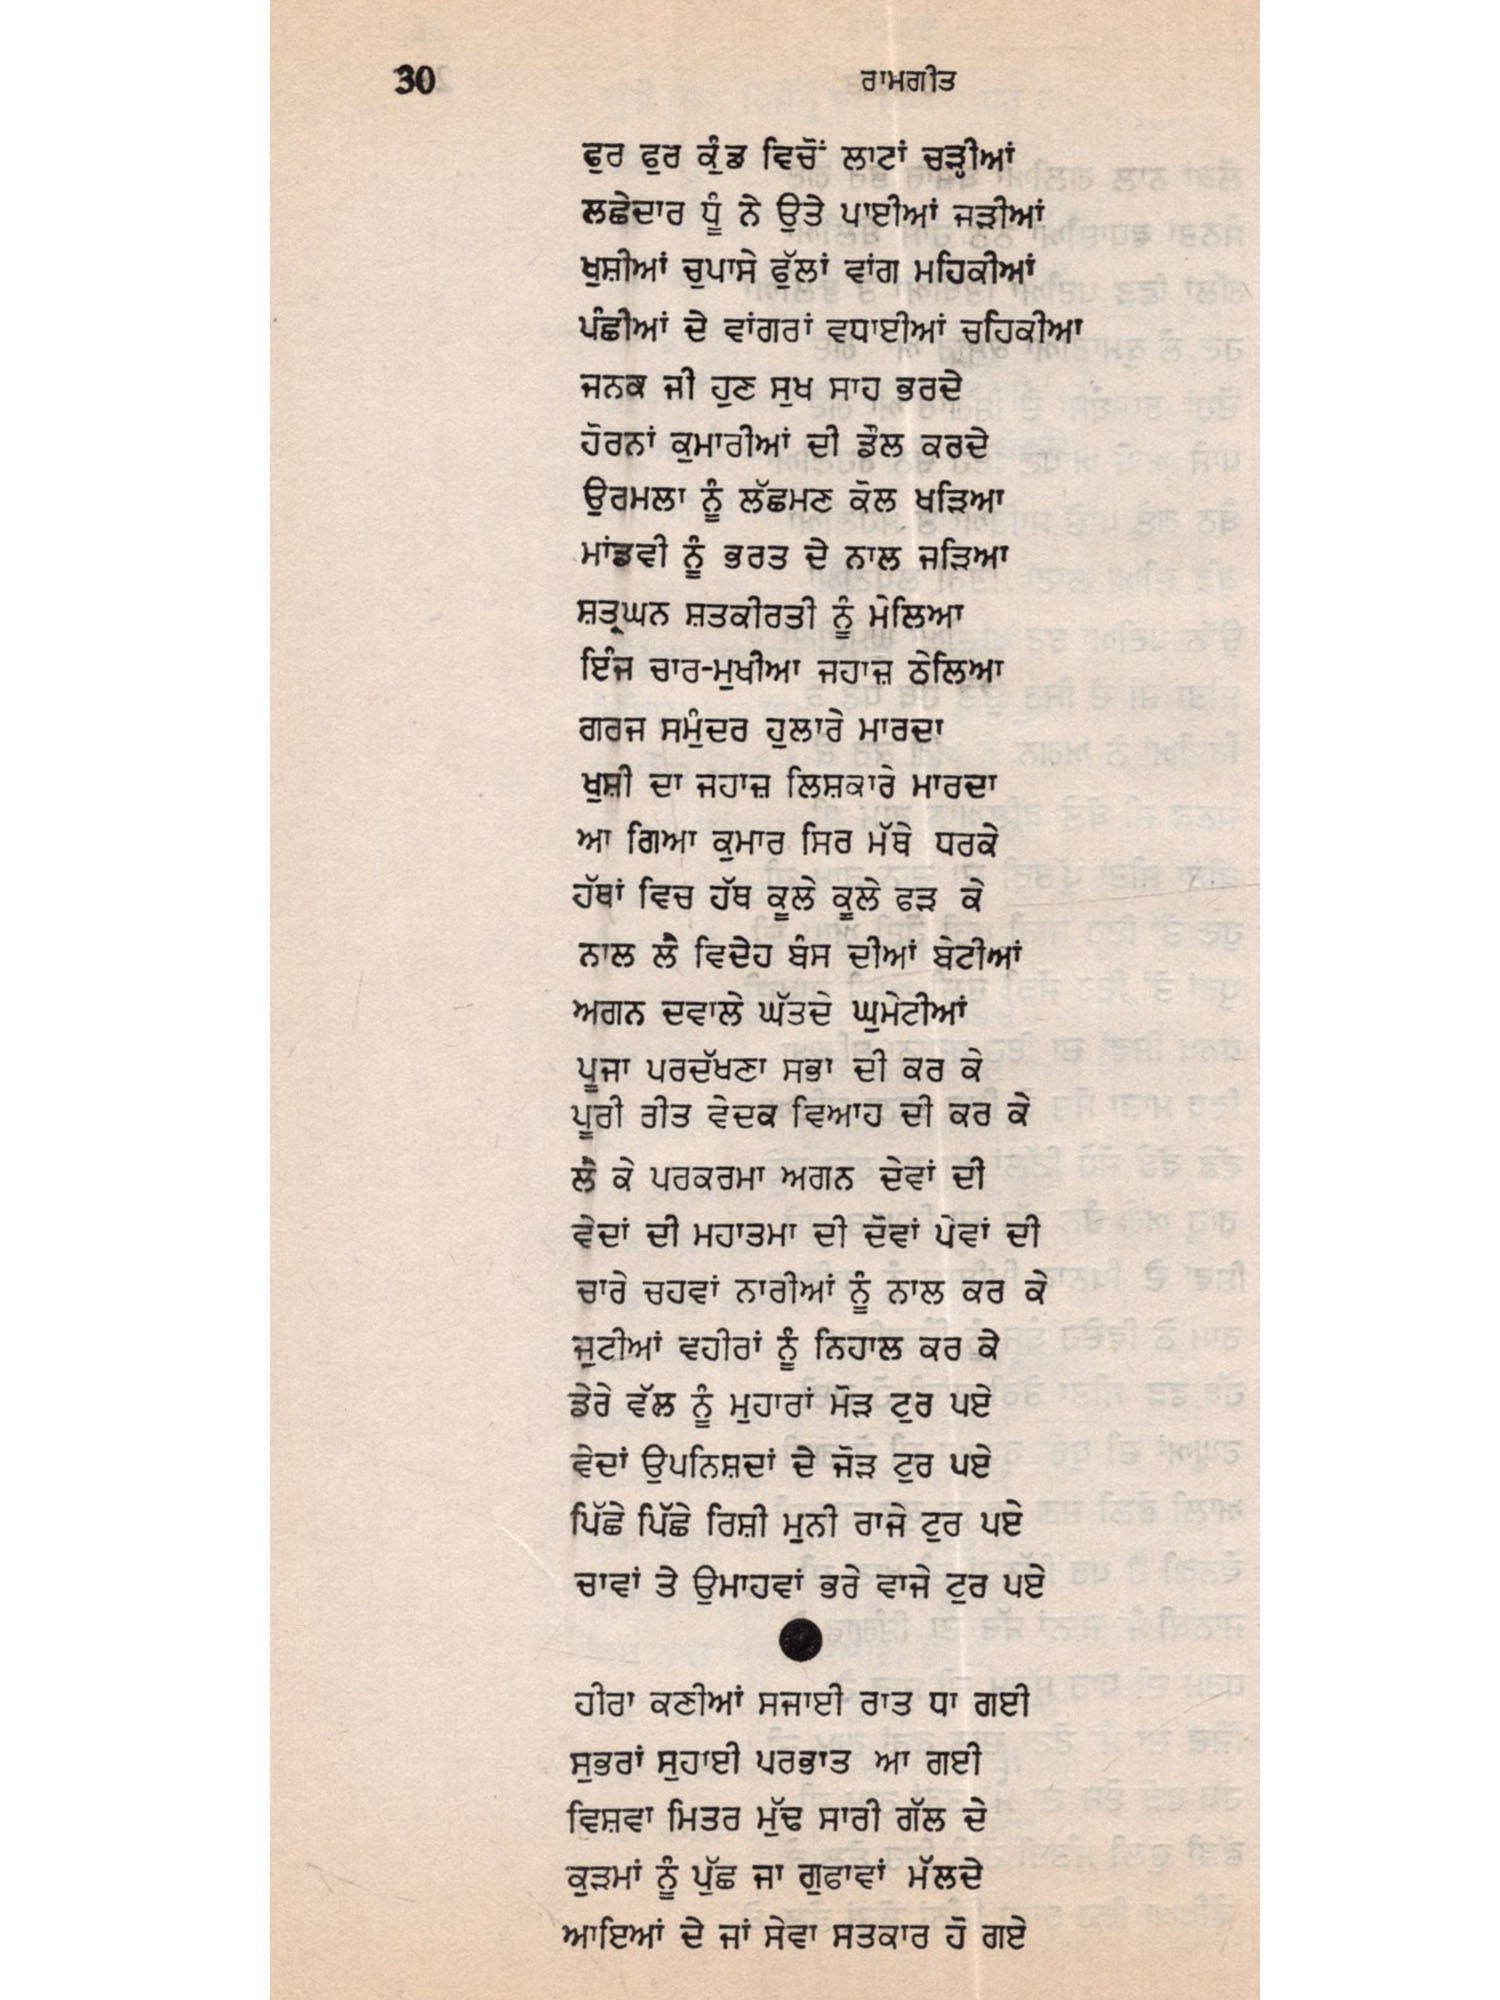 30 ਰਾਮਗੀਤ
ਫੁਰ ਫੁਰ ਕੁੰਡ ਵਿਚੋਂ ਲਾਟਾਂ ਚੜ੍ਹੀਆਂ
ਲਛੇਦਾਰ ਧੂੰ ਨੇ ਉਤੇ ਪਾਈਆਂ ਜੜੀਆਂ
ਖੁਸ਼ੀਆਂ ਚੁਪਾਸੇ ਫੁੱਲਾਂ ਵਾਂਗ ਮਹਿਕੀਆਂ
ਪੰਛੀਆਂ ਦੇ ਵਾਂਗਰਾਂ ਵਧਾਈਆਂ ਚਹਿਕੀਆ
ਜਨਕ ਜੀ ਹੁਣ ਸੁਖ ਸਾਹ ਭਰਦੇ
ਹੋਰਨਾਂ ਕੁਮਾਰੀਆਂ ਦੀ ਡੌਲ ਕਰਦੇ
ਉਰਮਲਾ ਨੂੰ ਲੱਛਮਣ ਕੋਲ ਖੜਿਆ
ਮਾਂਡਵੀ ਨੂੰ ਭਰਤ ਦੇ ਨਾਲ ਜੜਿਆ
ਸ਼ਤ੍ਰੁਘਨ ਸ਼ਤਕੀਰਤੀ ਨੂੰ ਮੇਲਿਆ
ਇੰਜ ਚਾਰ-ਮੁਖੀਆ ਜਹਾਜ਼ ਠੇਲਿਆ
ਗਰਜ ਸਮੁੰਦਰ ਹੁਲਾਰੇ ਮਾਰਦਾ
ਖੁਸ਼ੀ ਦਾ ਜਹਾਜ਼ ਲਿਸ਼ਕਾਰੇ ਮਾਰਦਾ
ਆ ਗਿਆ ਕੁਮਾਰ ਸਿਰ ਮੱਥੇ ਧਰਕੇ
ਹੱਥਾਂ ਵਿਚ ਹੱਥ ਕੂਲੇ ਕੂਲੇ ਫੜ ਕੇ
ਨਾਲ ਲੈ ਵਿਦੇਹ ਬੰਸ ਦੀਆਂ ਬੇਟੀਆਂ
ਅਗਨ ਦਵਾਲੇ ਘੱਤਦੇ ਘੁਮੇਟੀਆਂ
ਪੂਜਾ ਪਰਦੱਖਣਾ ਸਭਾ ਦੀ ਕਰ ਕੇ
ਪੂਰੀ ਰੀਤ ਵੇਦਕ ਵਿਆਹ ਦੀ ਕਰ ਕੇ
ਲੈ ਕੇ ਪਰਕਰਮਾ ਅਗਨ ਦੇਵਾਂ ਦੀ
ਵੇਦਾਂ ਦੀ ਮਹਾਤਮਾ ਦੀ ਦੋਵਾਂ ਪੇਵਾਂ ਦੀ
ਚਾਰੇ ਚਹਵਾਂ ਨਾਰੀਆਂ ਨੂੰ ਨਾਲ ਕਰ ਕੇ
ਜੁਟੀਆਂ ਵਹੀਰਾਂ ਨੂੰ ਨਿਹਾਲ ਕਰ ਕੇ
ਡੇਰੇ ਵੱਲ ਨੂੰ ਮੁਹਾਰਾਂ ਮੋੜ ਟੁਰ ਪਏ
ਵੇਦਾਂ ਉਪਨਿਸ਼ਦਾਂ ਦੇ ਜੋੜ ਟੁਰ ਪਏ
ਪਿੱਛੇ ਪਿੱਛੇ ਰਿਸ਼ੀ ਮੁਨੀ ਰਾਜੇ ਟੁਰ ਪਏ
ਚਾਵਾਂ ਤੇ ਉਮਾਹਵਾਂ ਭਰੇ ਵਾਜੇ ਟੁਰ ਪਏ
ਹੀਰਾ ਕਣੀਆਂ ਸਜਾਈ ਰਾਤ ਧਾ ਗਈ
ਸੁਭਰਾਂ ਸੁਹਾਈ ਪਰਭਾਤ ਆ ਗਈ
ਵਿਸ਼ਵਾ ਮਿਤਰ ਮੁੱਢ ਸਾਰੀ ਗੱਲ ਦੇ
ਕੁੜਮਾਂ ਨੂੰ ਪੁੱਛ ਜਾ ਗੁਫਾਵਾਂ ਮੱਲਦੇ
ਆਇਆਂ ਦੇ ਜਾਂ ਸੇਵਾ ਸਤਕਾਰ ਹੋ ਗਏ